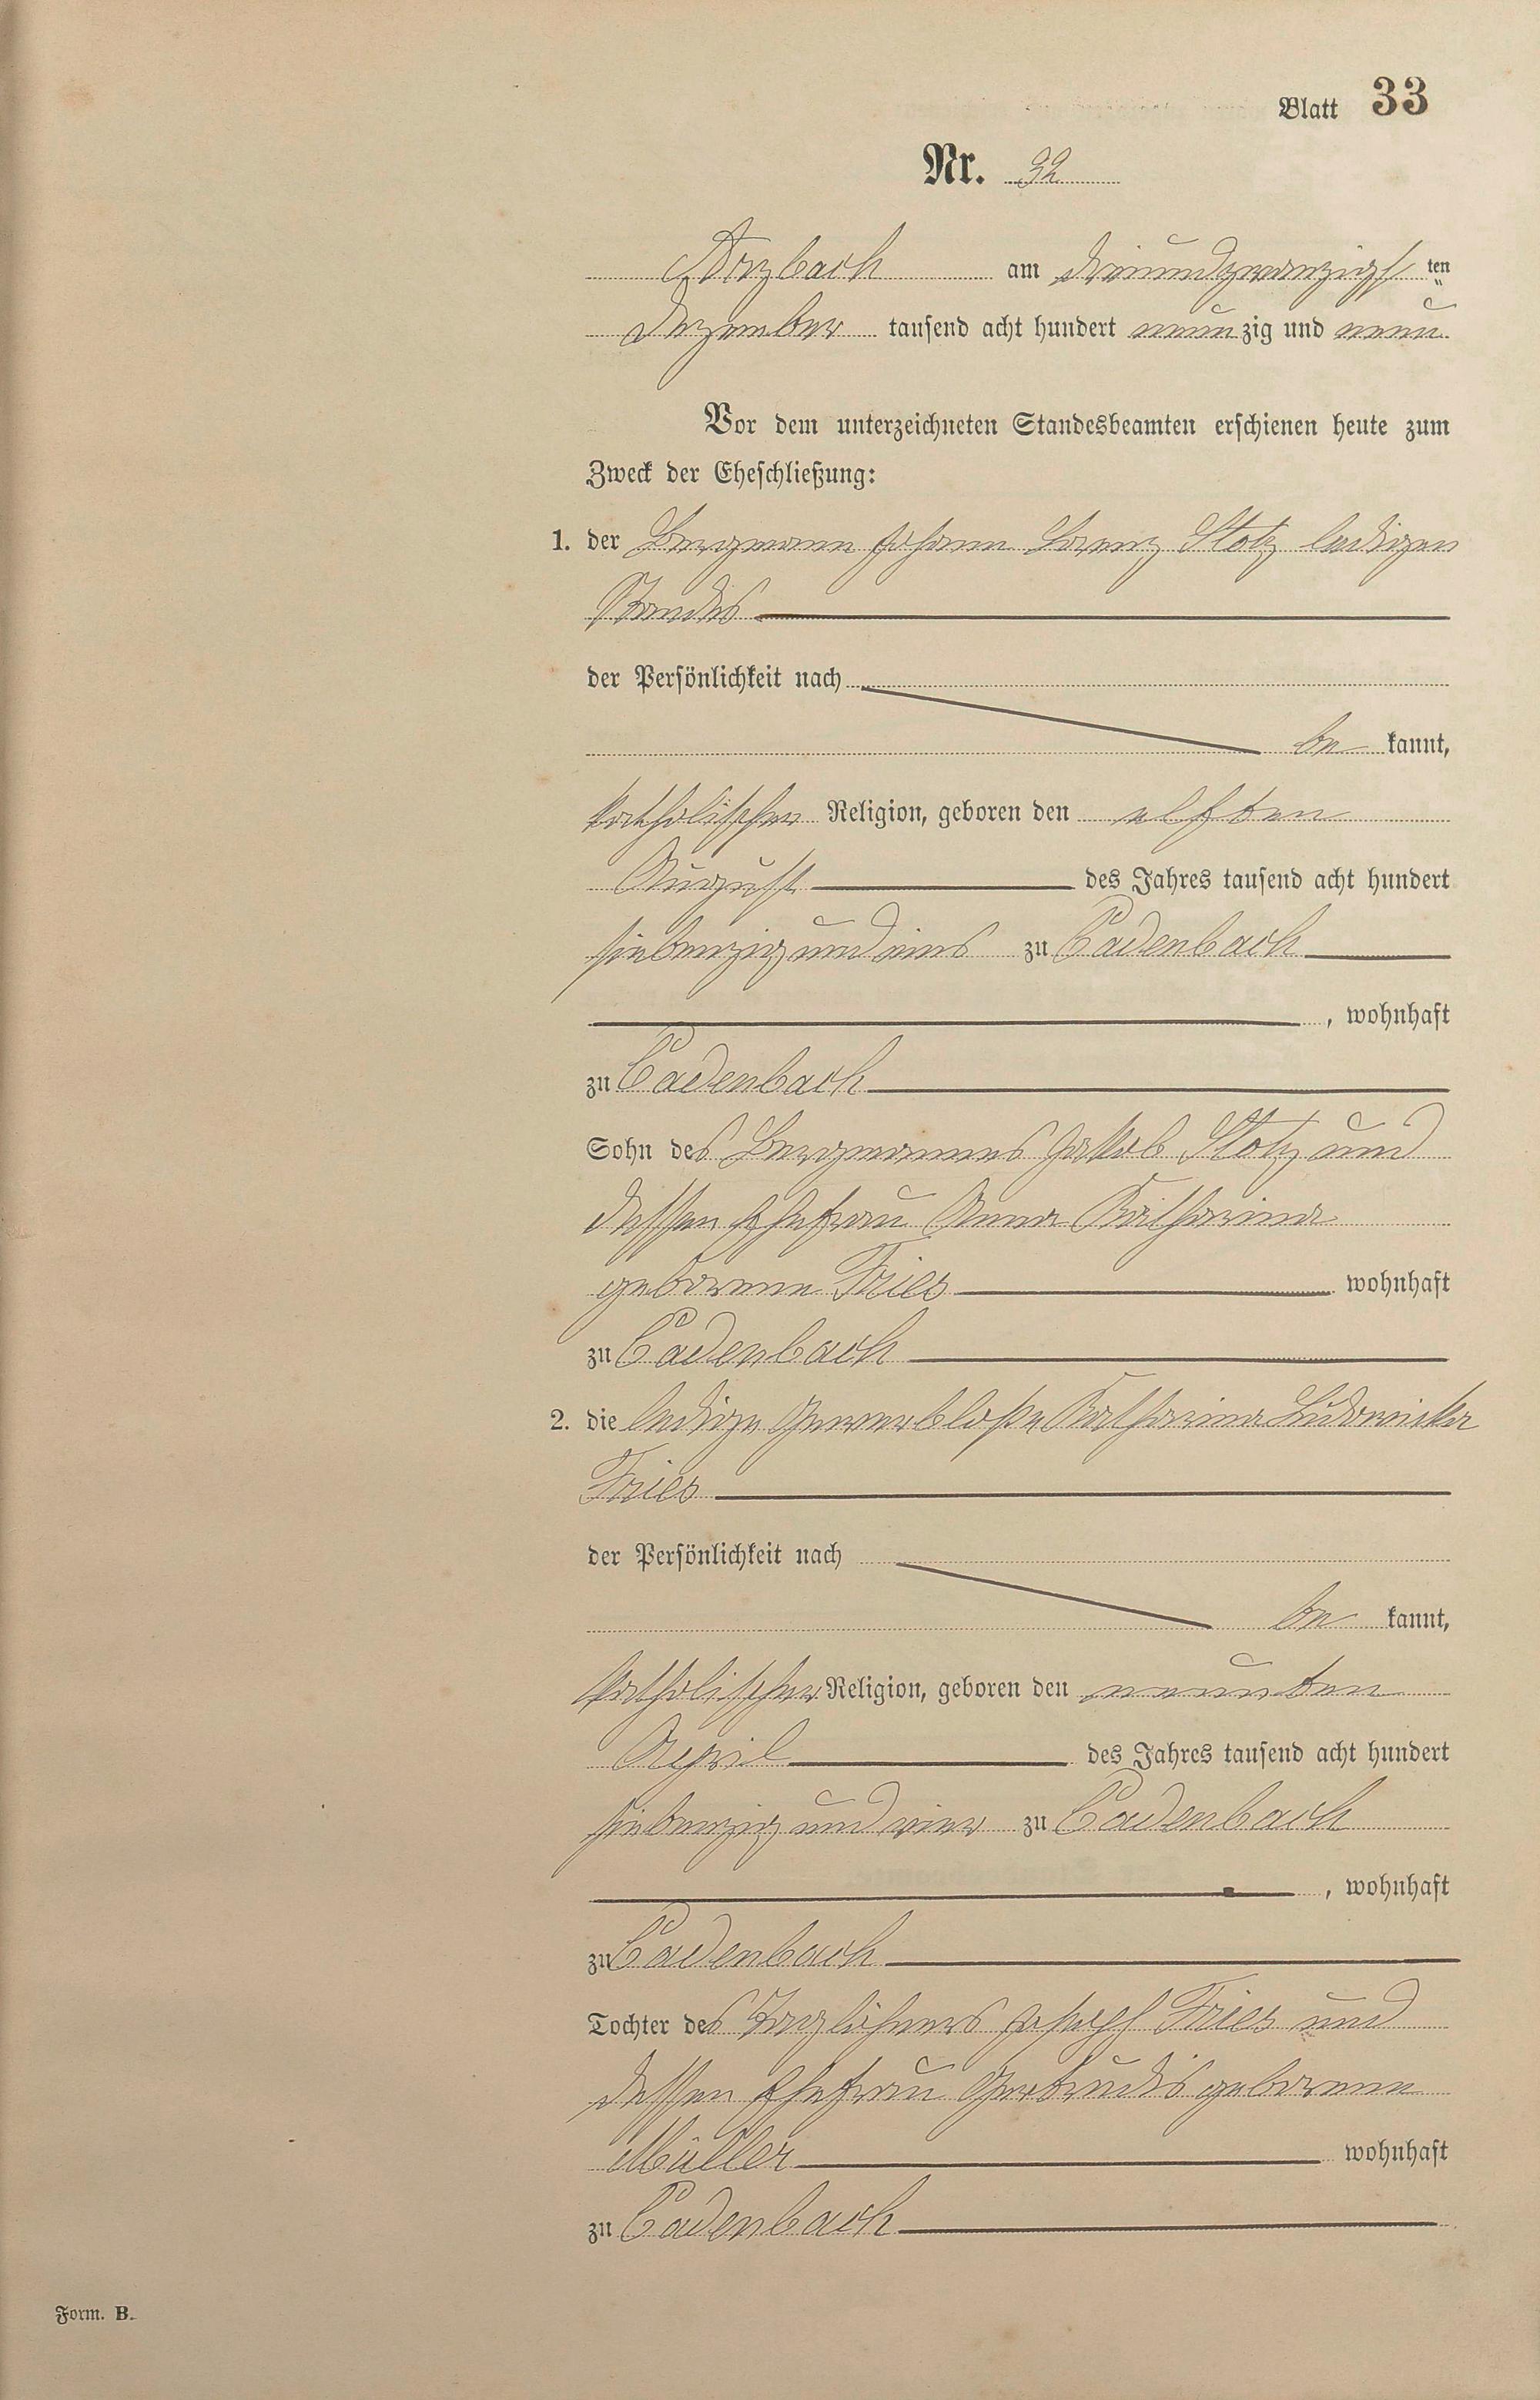 Blatt 33
Nr. 32
Arzbach am dreiundzwanzigsten
Dezember tausend acht hundert neunzig und neun
Vor dem unterzeichneten Standesbeamten erschienen heute zum
Zweck der Eheschließung:
1. der Bergmann Johann Lorenz Stotz ledigen
Standes
der Persönlichkeit nach
be kannt,
katholischer Religion, geboren den elften
August des Jahres tausend acht hundert
siebenzig und eins zu Cadenbach
, wohnhaft
zu Cadenbach
Sohn des Bergmannes Jakob Stotz und
dessen Ehefrau Anna Katharina
geborene Fries wohnhaft
zu Cadenbach
2. die ledige Gewerblose Katharina Ludowika
Fries
der Persönlichkeit nach
be kannt,
katholischer Religion, geboren den neunten
April des Jahres tausend acht hundert
siebenzig und vier zu Cadenbach
, wohnhaft
zu Cadenbach
Tochter des Taglöhners Joseph Fries und
dessen Ehefrau Gertrudis geborene
Müller wohnhaft
zu Cadenbach
Form. B.